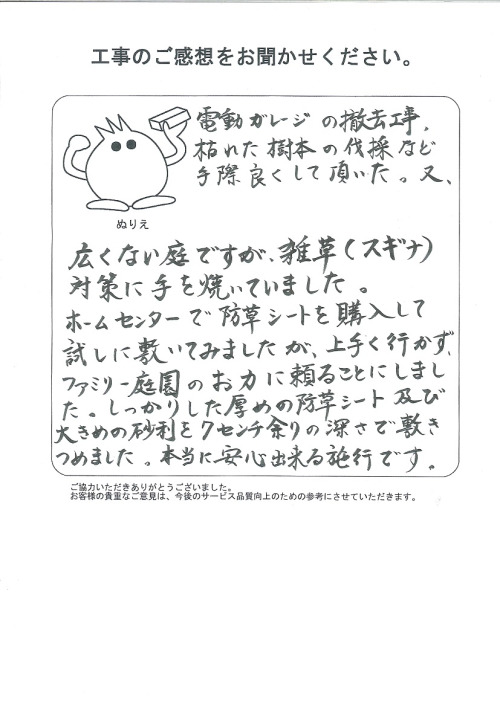 工事のご感想をお聞かせください。
電動ガレージの撤去工事、
枯れた樹木の伐採など
手際良くして頂いた。又、
ぬりえ
広くない庭ですが、雑草(スギナ)
対策に手を焼いていました。
ホームセンターで防草シートを購入して
試しに敷いてみましたが、上手く行かず、
ファミリー庭園のお力に頼ることにしまし
た。しっかりした厚めの防草シート及び
大きめの砂利を7センチ余りの深さで敷き
つめました。本当に安心出来る施行です。
ご協力いただきありがとうございました。
お客様の貴重なご意見は、今後のサービス品質向上のための参考にさせていただきます。